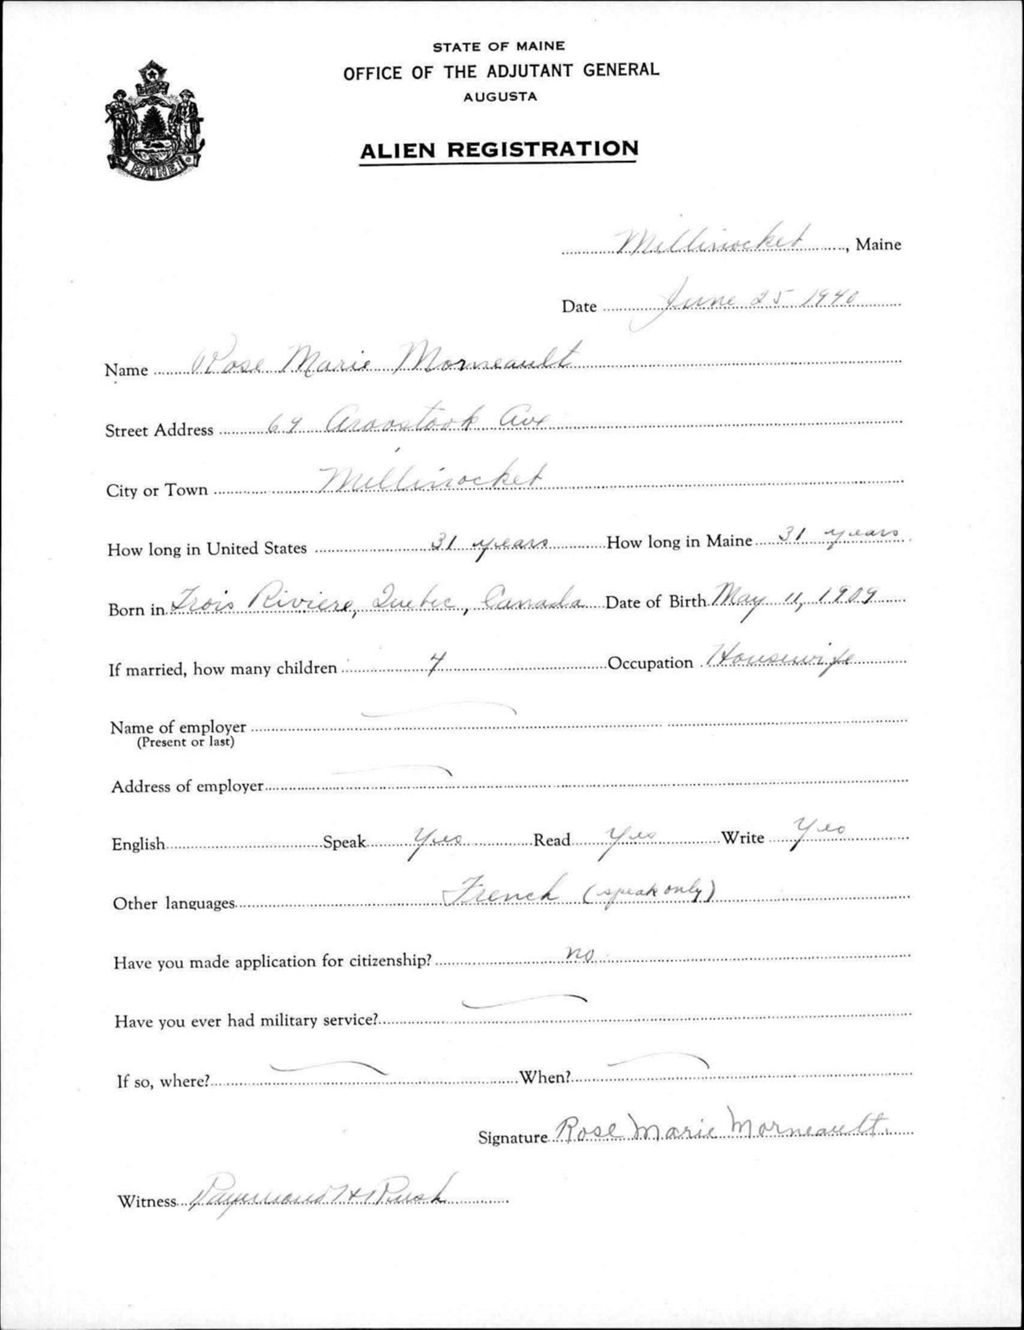 STATE OF MAINE
OFFICE OF THE ADJUTANT GENERAL
AUGUSTA
ALIEN REGISTRATION
MAINE
Millinocket, Maine
Date June 25 1940
Name Rose Marie Morneault
Street Address 69 Aroostook Ave
City or Town Millinocket
How long in United States 31 years How long in Maine 31 years
Born in Trois Riviere, Quebec, Canada Date of Birth May 11, 1909
If married, how many children 4 Occupation Housewife
Name of employer
(Present or last)
Address of employer
English Speak Yes Read Yes Write Yes
Other languages French (speak only)
Have you made application for citizenship? no
Have you ever had military service?
If so, where? When?
Signature Rose Marie Morneault.
Witness Raymond H Rush